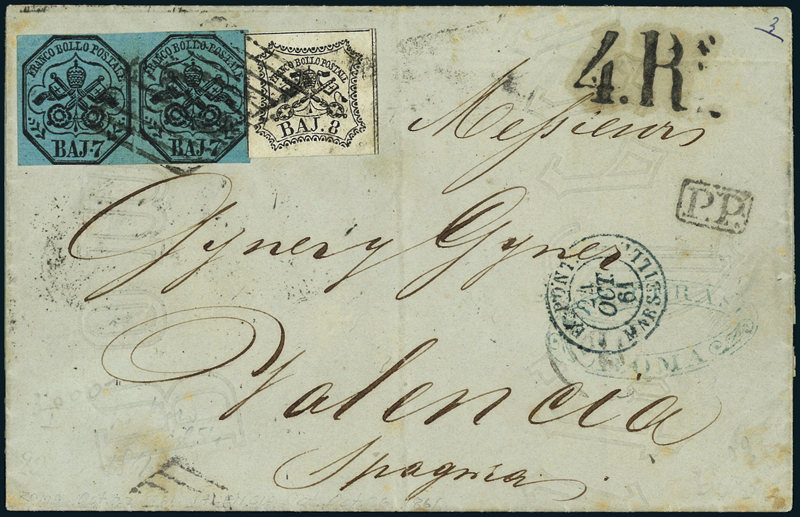 3
FRANCO BOLLO POSTALE
BAJ. 7
FRANCO BOLLO POSTALE
BAJ. 7
FRANCO BOLLO POSTALE
BAJ. 8
4.Rs
Messieurs
P.P.
Gyner y Gyner
E. PONT. MARSEILLE
24
OCT.
61
ROMA
Valencia
Spagna